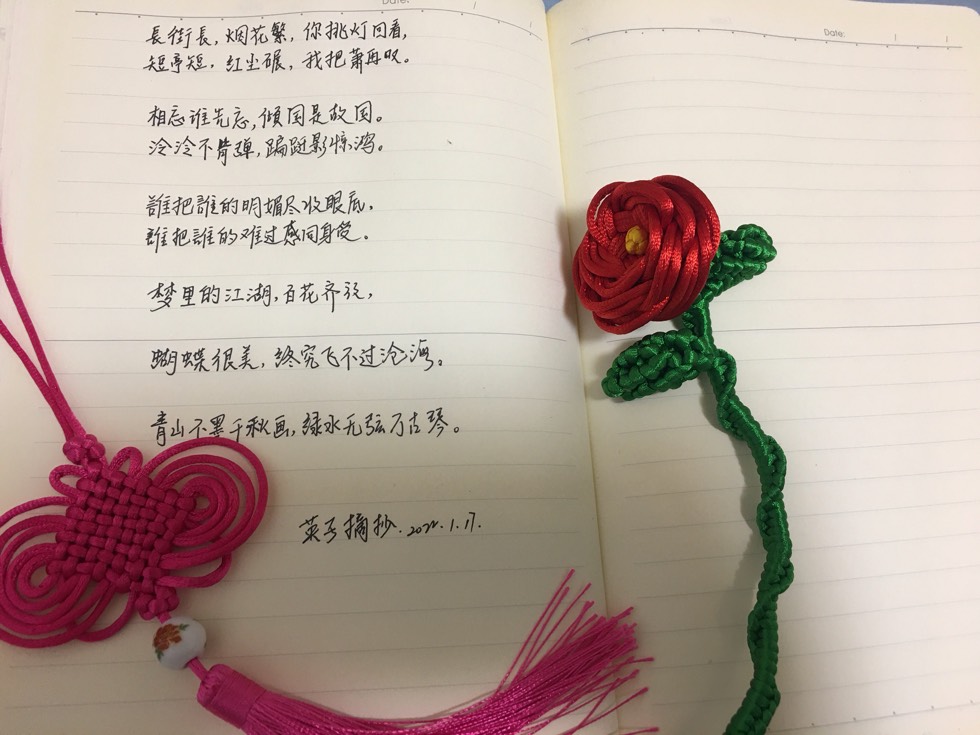 Date:
Date:
長街長，烟花繁，你挑灯回看，
短亭短，红尘碾，我把萧再叹。
相忘谁先忘，倾国是故国。
泠泠不肯弹，蹁跹影惊鸿。
誰把誰的明媚尽收眼底，
誰把誰的难过感同身受。
梦里的江湖，百花齐放，
蝴蝶很美，终究飞不过沧海。
青山不墨千秋画，绿水无弦万古琴。
菜子摘抄.2022.1.17.